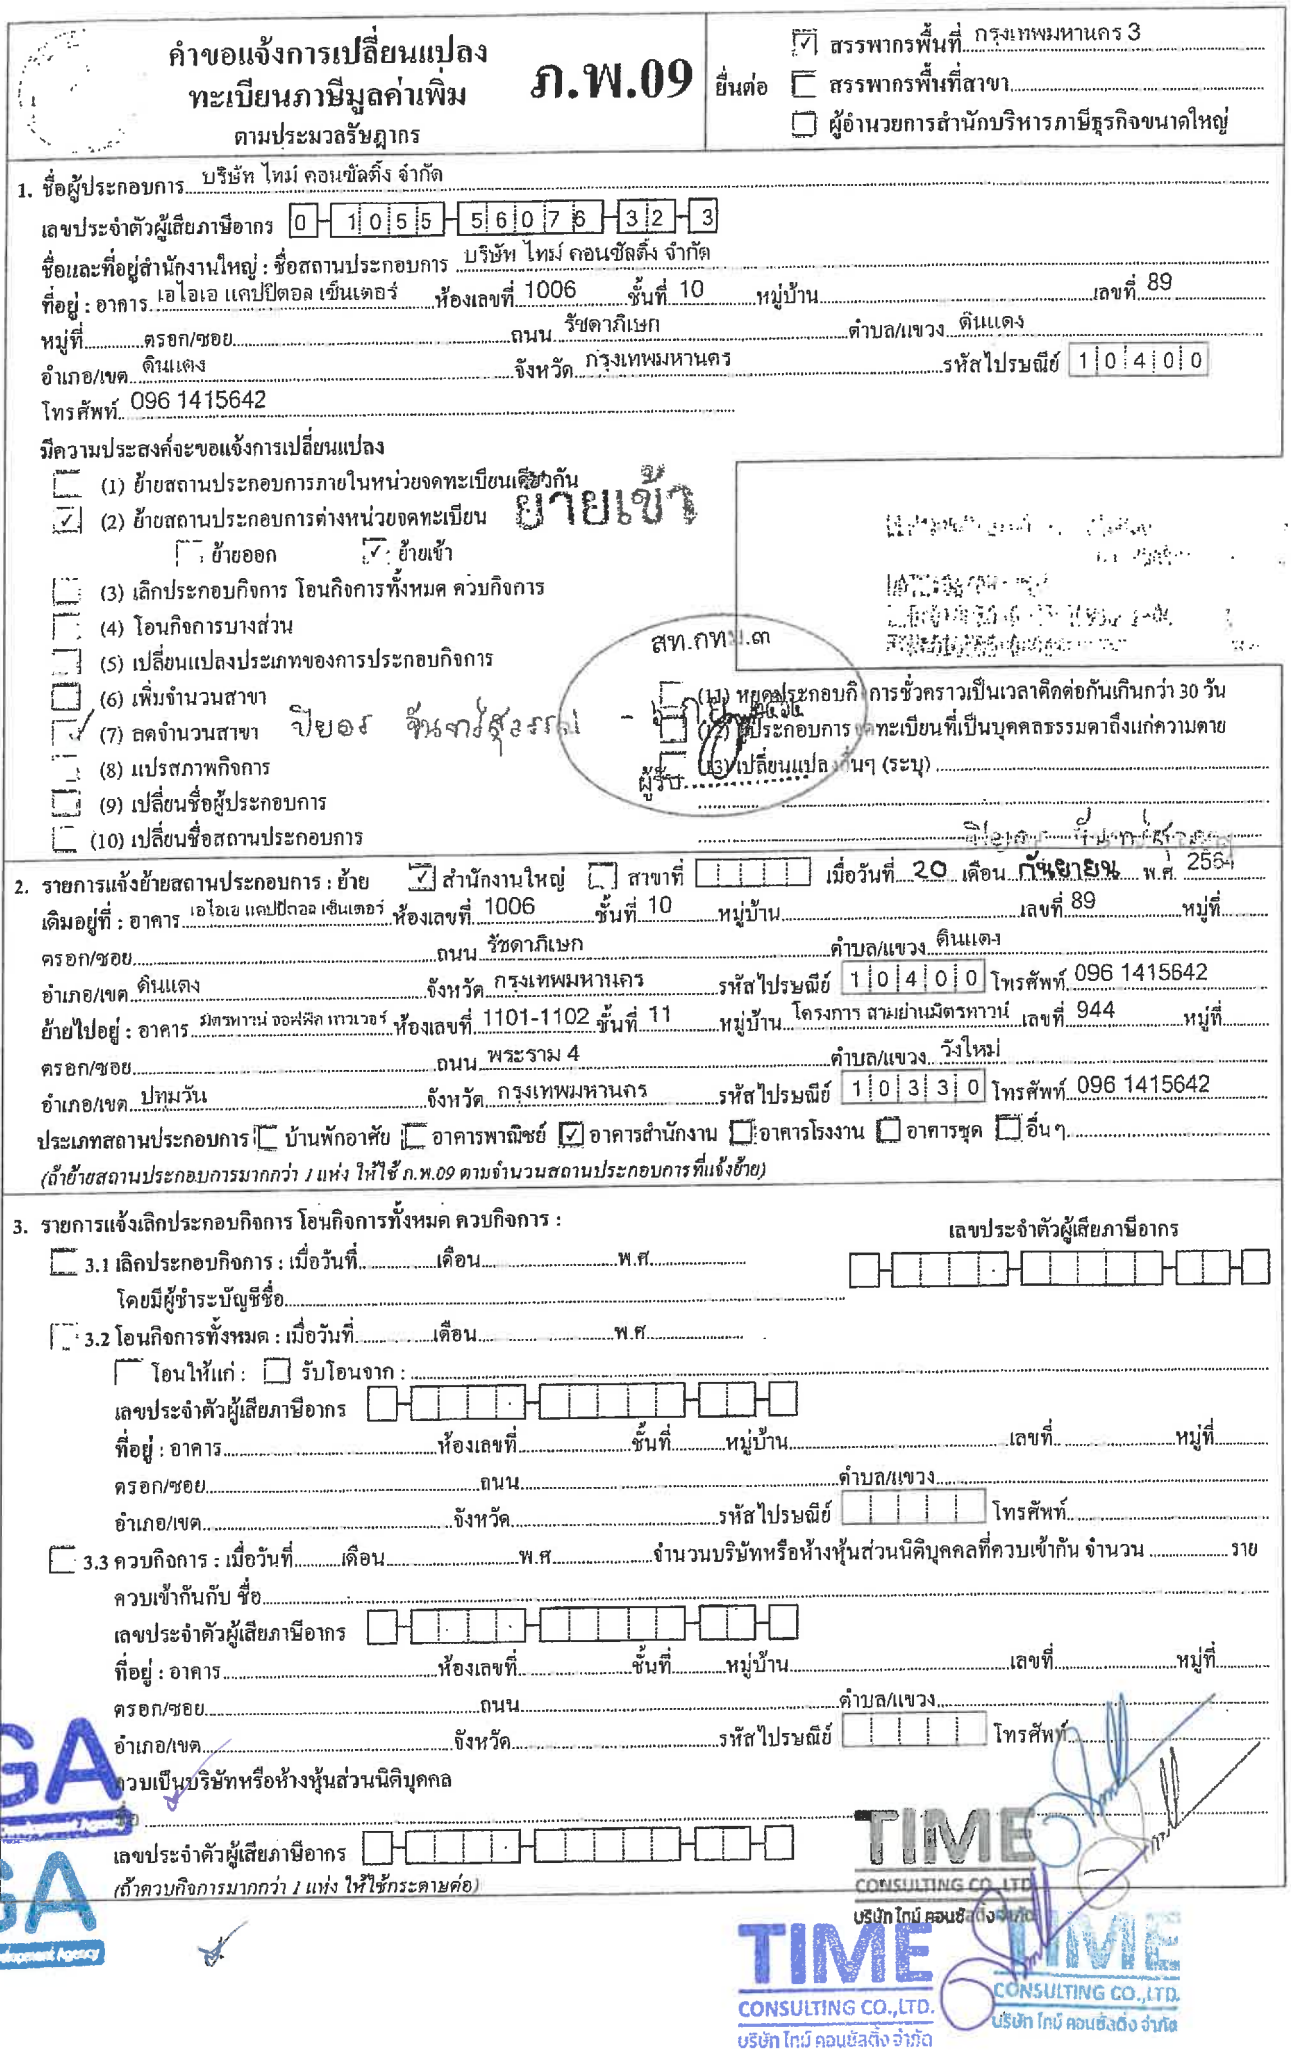 คำขอแจ้งการเปลี่ยนแปลง
ทะเบียนภาษีมูลค่าเพิ่ม
ตามประมวลรัษฎากร
ภ.พ.09
ยื่นต่อ
สรรพากรพื้นที่ กรุงเทพมหานคร 3
สรรพากรพื้นที่สาขา
ผู้อำนวยการสำนักบริหารภาษีธุรกิจขนาดใหญ่
1. ชื่อผู้ประกอบการ บริษัท ไทม์ คอนซัลติ้ง จำกัด
เลขประจำตัวผู้เสียภาษีอากร 0-1055-56076-32-3
ชื่อและที่อยู่สำนักงานใหญ่ : ชื่อสถานประกอบการ บริษัท ไทม์ คอนซัลติ้ง จำกัด
ที่อยู่ : อาคาร เอไอเอ แคปปิตอล เซ็นเตอร์ ห้องเลขที่ 1006 ชั้นที่ 10 หมู่บ้าน เลขที่ 89
หมู่ที่ ตรอก/ซอย ถนน รัชดาภิเษก ตำบล/แขวง ดินแดง
อำเภอ/เขต ดินแดง จังหวัด กรุงเทพมหานคร รหัสไปรษณีย์ 10400
โทรศัพท์ 096 1415642
มีความประสงค์จะขอแจ้งการเปลี่ยนแปลง
(1) ย้ายสถานประกอบการภายในหน่วยจดทะเบียนเดียวกัน
(2) ย้ายสถานประกอบการต่างหน่วยจดทะเบียน
ย้ายเข้า
ย้ายออก ย้ายเข้า
(3) เลิกประกอบกิจการ โอนกิจการทั้งหมด ควบกิจการ
(4) โอนกิจการบางส่วน
สท.กทม.๓
(5) เปลี่ยนแปลงประเภทของการประกอบกิจการ
(6) เพิ่มจำนวนสาขา
(11) หยุดประกอบกิจการชั่วคราวเป็นเวลาติดต่อกันเกินกว่า 30 วัน
(7) ลดจำนวนสาขา ปิยอร จันทร์สุวรรณ
(12) ผู้ประกอบการจดทะเบียนที่เป็นบุคคลธรรมดาถึงแก่ความตาย
(8) แปรสภาพกิจการ
(13) เปลี่ยนแปลงอื่นๆ (ระบุ)
ผู้รับ
(9) เปลี่ยนชื่อผู้ประกอบการ
(10) เปลี่ยนชื่อสถานประกอบการ
2. รายการแจ้งย้ายสถานประกอบการ : ย้าย สำนักงานใหญ่ สาขาที่ เมื่อวันที่ 20 เดือน กันยายน พ.ศ. 2564
เดิมอยู่ที่ : อาคาร เอไอเอ แคปปิตอล เซ็นเตอร์ ห้องเลขที่ 1006 ชั้นที่ 10 หมู่บ้าน เลขที่ 89 หมู่ที่
ตรอก/ซอย ถนน รัชดาภิเษก ตำบล/แขวง ดินแดง
อำเภอ/เขต ดินแดง จังหวัด กรุงเทพมหานคร รหัสไปรษณีย์ 10400 โทรศัพท์ 096 1415642
ย้ายไปอยู่ : อาคาร มิตรทาวน์ ออฟฟิศ ทาวเวอร์ ห้องเลขที่ 1101-1102 ชั้นที่ 11 หมู่บ้าน โครงการ สามย่านมิตรทาวน์ เลขที่ 944 หมู่ที่
ตรอก/ซอย ถนน พระราม 4 ตำบล/แขวง วังใหม่
อำเภอ/เขต ปทุมวัน จังหวัด กรุงเทพมหานคร รหัสไปรษณีย์ 10330 โทรศัพท์ 096 1415642
ประเภทสถานประกอบการ บ้านพักอาศัย อาคารพาณิชย์ อาคารสำนักงาน อาคารโรงงาน อาคารชุด อื่น ๆ
(ถ้าย้ายสถานประกอบการมากกว่า 1 แห่ง ให้ใช้ ภ.พ.09 ตามจำนวนสถานประกอบการที่แจ้งย้าย)
3. รายการแจ้งเลิกประกอบกิจการ โอนกิจการทั้งหมด ควบกิจการ :
เลขประจำตัวผู้เสียภาษีอากร
3.1 เลิกประกอบกิจการ : เมื่อวันที่ เดือน พ.ศ.
โดยมีผู้ชำระบัญชีชื่อ
3.2 โอนกิจการทั้งหมด : เมื่อวันที่ เดือน พ.ศ.
โอนให้แก่ : รับโอนจาก :
เลขประจำตัวผู้เสียภาษีอากร
ที่อยู่ : อาคาร ห้องเลขที่ ชั้นที่ หมู่บ้าน เลขที่ หมู่ที่
ตรอก/ซอย ถนน ตำบล/แขวง
อำเภอ/เขต จังหวัด รหัสไปรษณีย์ โทรศัพท์
3.3 ควบกิจการ : เมื่อวันที่ เดือน พ.ศ. จำนวนบริษัทหรือห้างหุ้นส่วนนิติบุคคลที่ควบเข้ากัน จำนวน ราย
ควบเข้ากันกับ ชื่อ
เลขประจำตัวผู้เสียภาษีอากร
ที่อยู่ : อาคาร ห้องเลขที่ ชั้นที่ หมู่บ้าน เลขที่ หมู่ที่
ตรอก/ซอย ถนน ตำบล/แขวง
อำเภอ/เขต จังหวัด รหัสไปรษณีย์ โทรศัพท์
GA
ควบเป็นบริษัทหรือห้างหุ้นส่วนนิติบุคคล
ชื่อ
เลขประจำตัวผู้เสียภาษีอากร
(ถ้าควบกิจการมากกว่า 1 แห่ง ให้ใช้กระดาษต่อ)
GA
Agency
TIME
CONSULTING CO.,LTD.
บริษัท ไทม์ คอนซัลติ้ง จำกัด
TIME
CONSULTING CO.,LTD.
บริษัท ไทม์ คอนซัลติ้ง จำกัด
TIME
CONSULTING CO.,LTD.
บริษัท ไทม์ คอนซัลติ้ง จำกัด